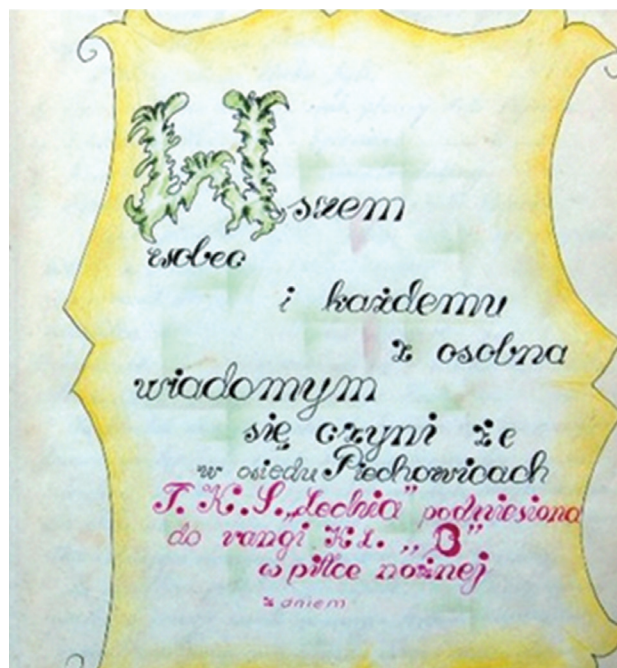 Wszem
wobec
i każdemu
z osobna
wiadomym
się czyni że
w osiedu Piechowicach
T. K. S. „Lechia” podniesiona
do rangi Kl. „B”
w piłce nożnej
z dniem